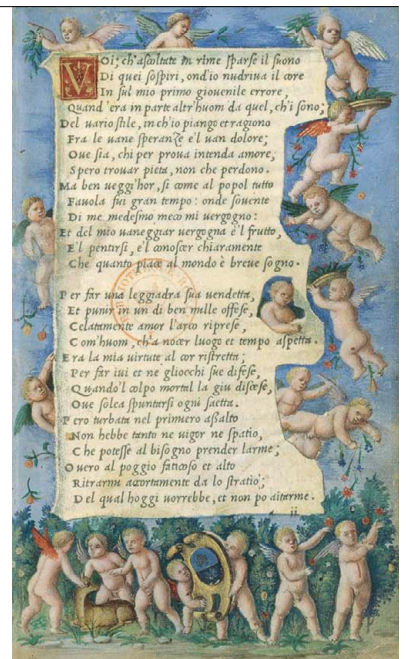 VOi, ch'ascoltate in rime sparse il suono
Di quei sospiri, ond'io nudriua il core
In sul mio primo giouenile errore,
Quand'era in parte altr'huom da quel, ch'i sono;
Del uario stile, in ch'io piango et ragiono
Fra le uane speranze e'l uan dolore;
Oue sia, chi per proua intenda amore,
Spero trouar pieta, non che perdono.
Ma ben ueggi'hor, si come al popol tutto
Fauola fui gran tempo: onde souente
Di me medesmo meco mi uergogno:
Et del mio uaneggiar uergogna è'l frutto,
E'l pentirsi, e'l conoscer chiaramente
Che quanto piace al mondo è breue sogno.
Per far una leggiadra sua uendetta,
Et punir in un di ben mille offese,
Celatamente amor l'arco riprese,
Com'huom, ch'a nocer luogo et tempo aspetta.
Era la mia uirtute al cor ristretta;
Per far iui et ne gliocchi sue difese,
Quando'l colpo mortal la giu discese,
Oue solea spuntarsi ogni saetta.
Pero turbata nel primiero assalto
Non hebbe tanto ne uigor ne spatio,
Che potesse al bisogno prender larme;
Ouero al poggio faticoso et alto
Ritrarmi accortamente da lo stratio;
Del qual hoggi uorrebbe, et non po aitarme.
ii